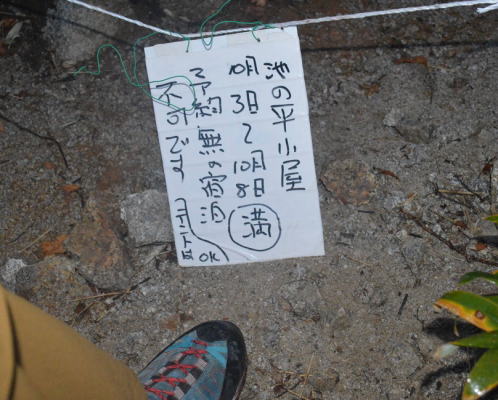 池の平小屋
10月3日〜10月8日 満
予約無の宿泊
不可です
OK